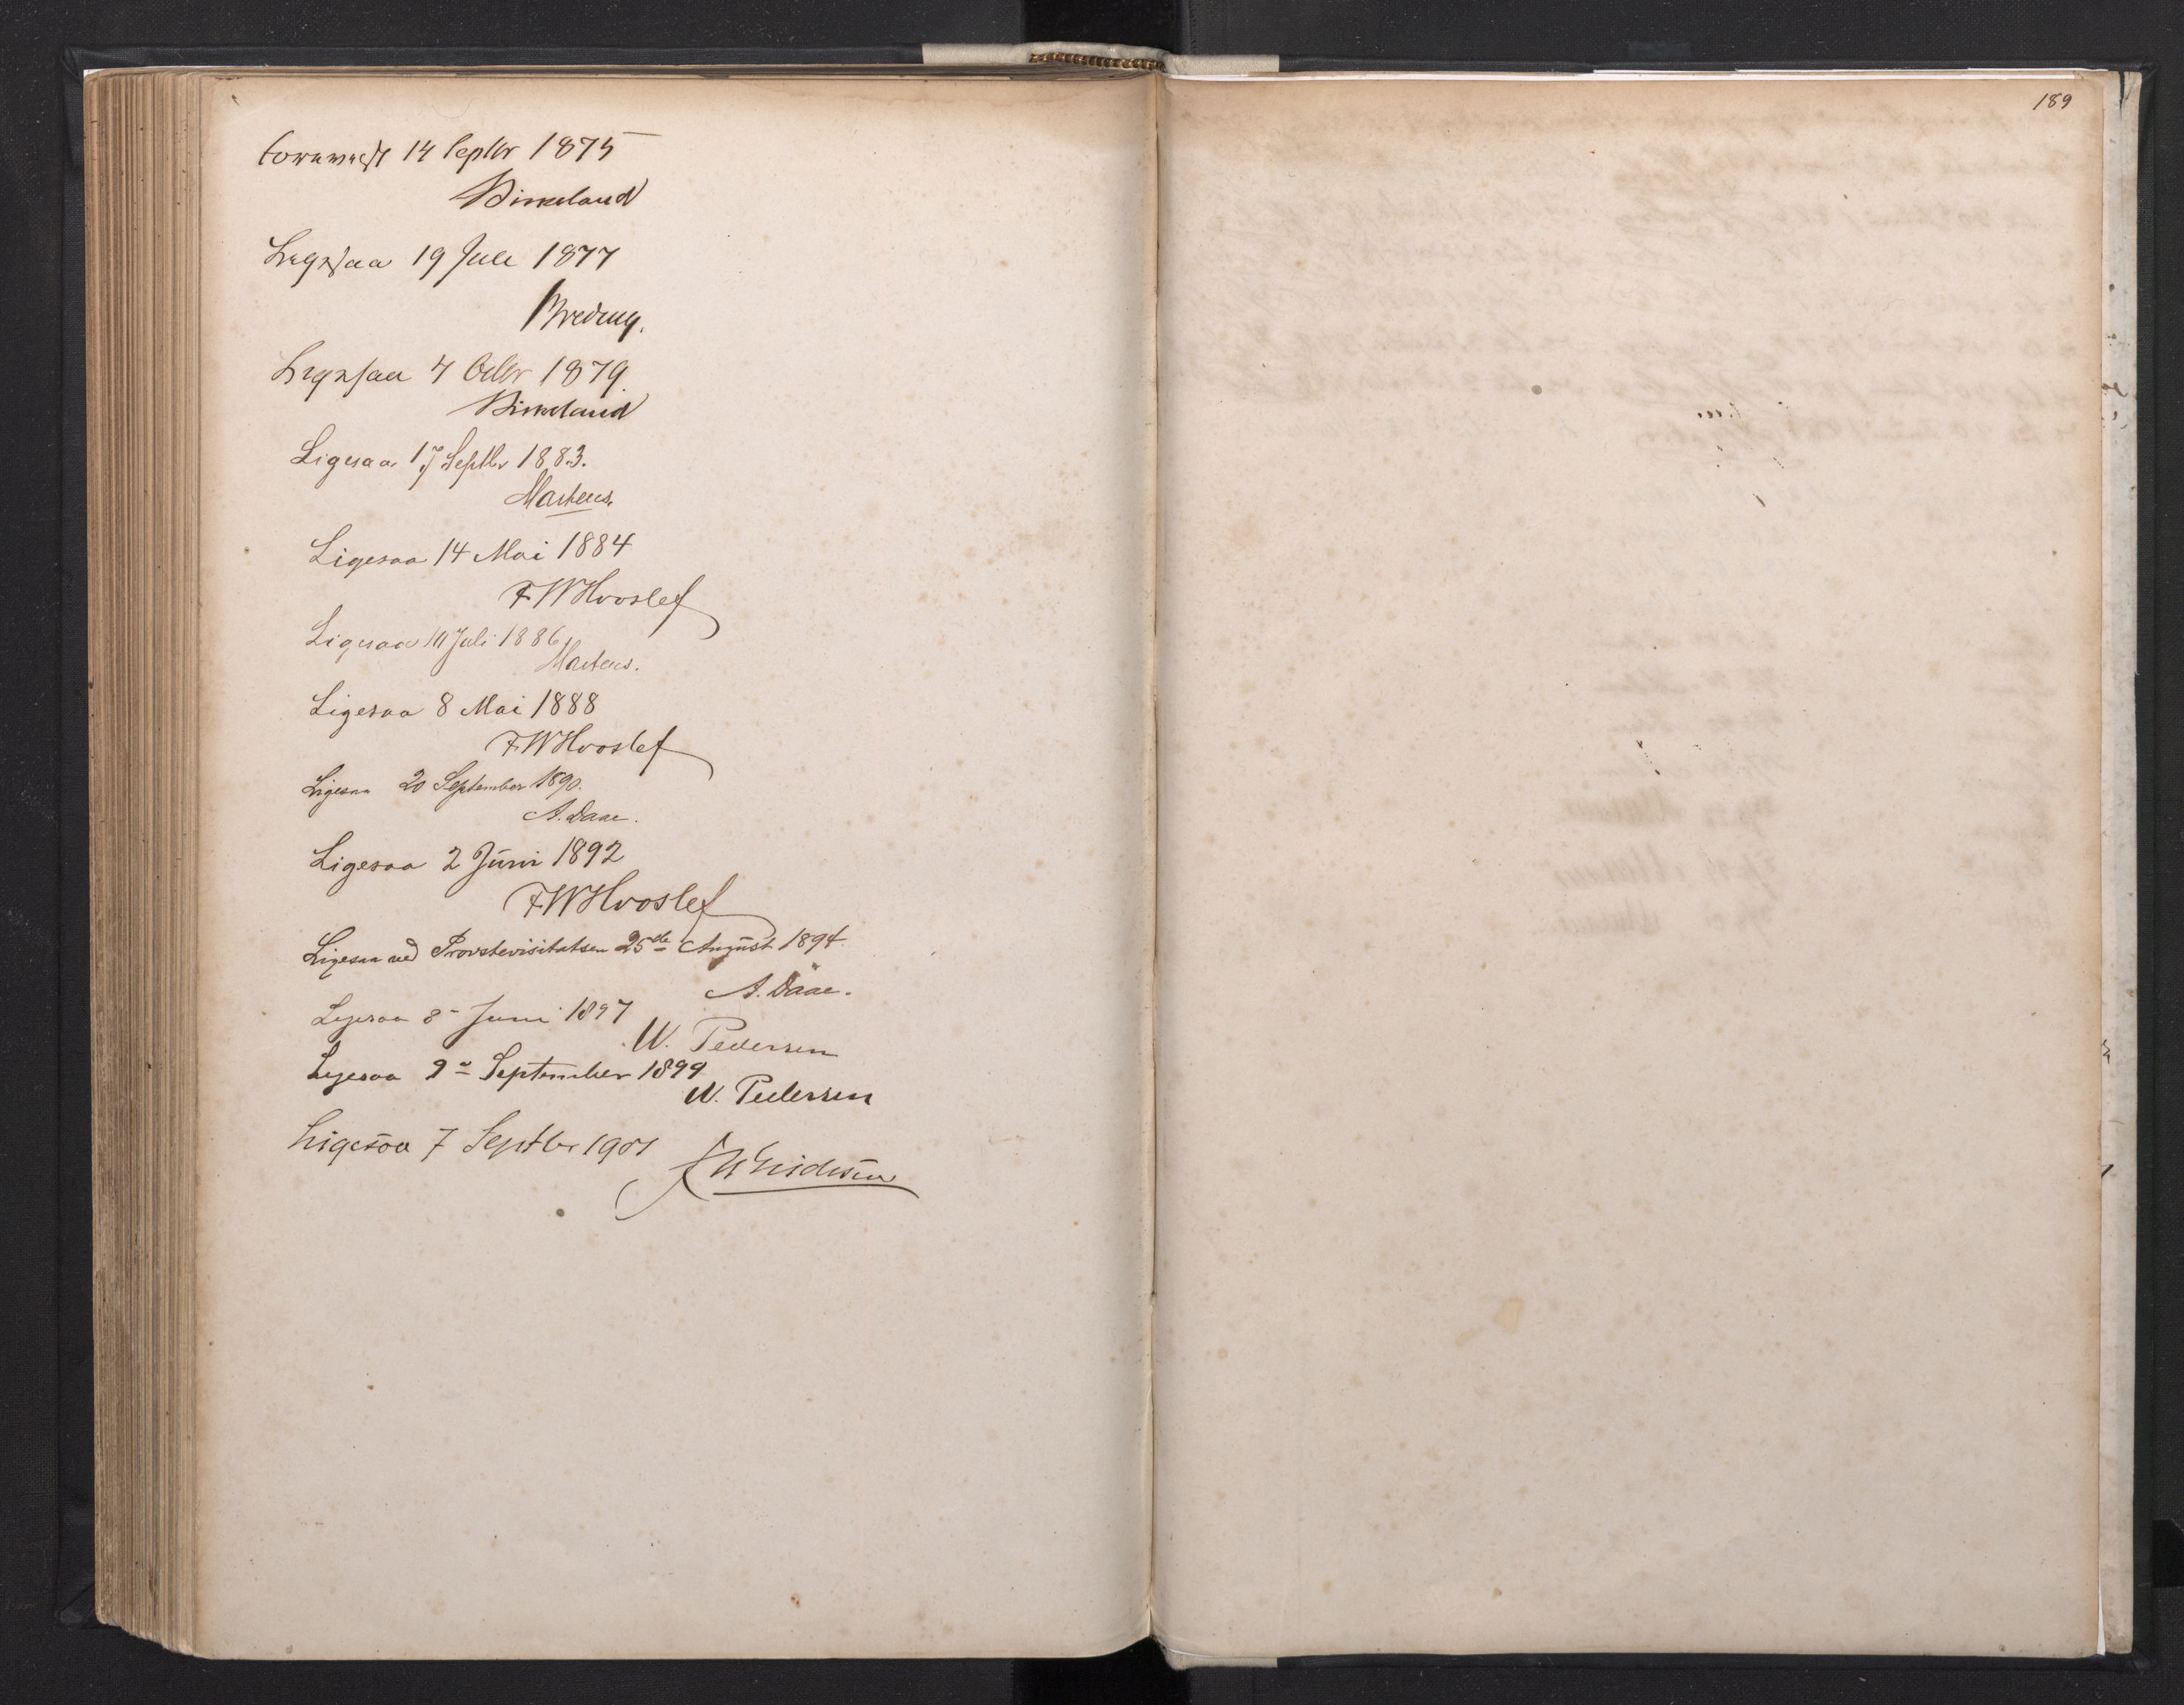 189
14 Septbr 1875
Birkeland
Ligesaa 19 Juli 1877
Ligesaa 4 Octbr 1879
Birkeland
Ligesaa 17 Septbr 1883.
Martens.
Ligesaa 14 Mai 1884
F W Hvoslef
Ligesaa Juli 1886
Martens.
Ligesaa 8 Mai 1888
F.W Hvoslef
Ligesaa 20 September 1890.
A. Daae.
Ligesaa 2 Juni 1892
F.W Hvoslef
Ligesaa ved Provstevisitatsen 25de August 1894.
A. Daae.
Ligesaa 8 Juni 1897
W. Pedersen
Ligesaa 9 September 1899
W. Pedersen
Ligesaa 7 Septbr 1901